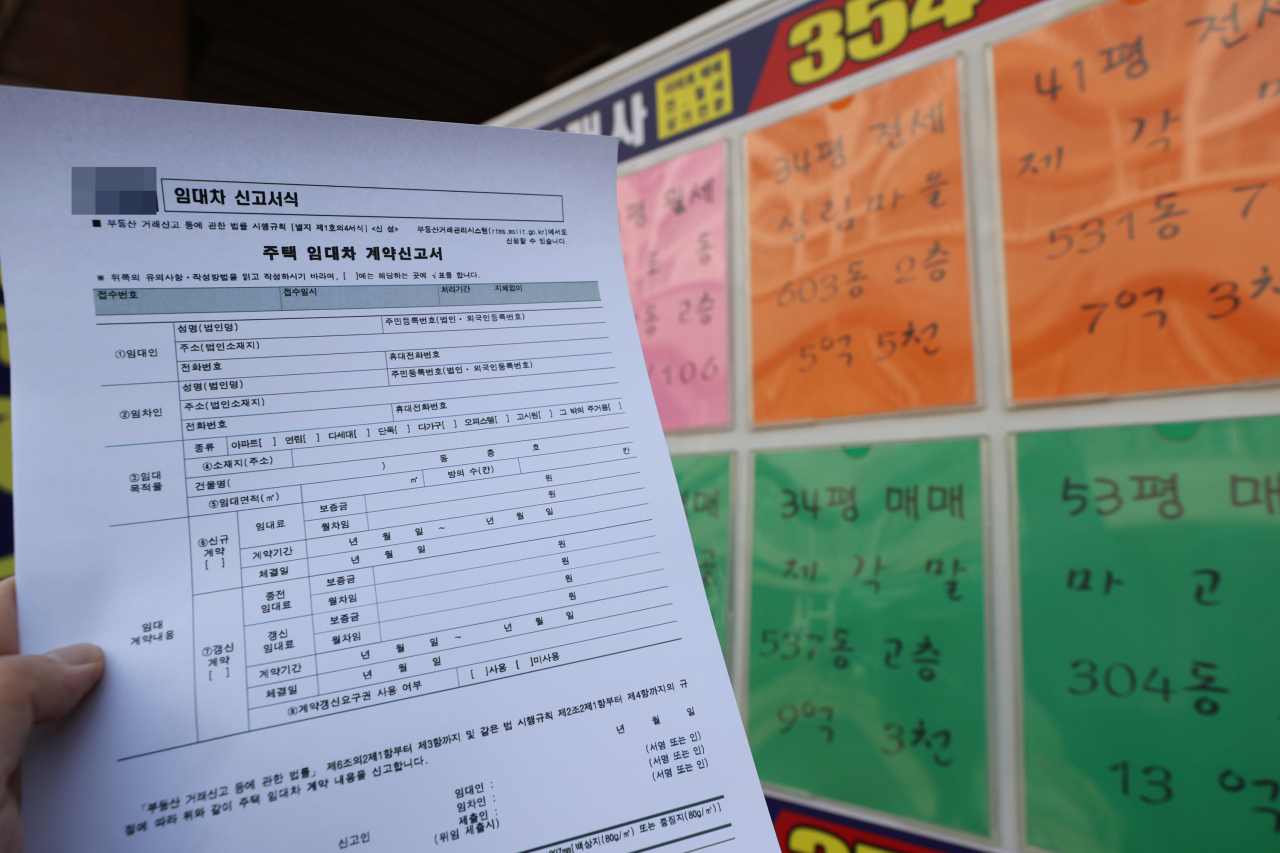 임대차 신고서식
■ 부동산 거래신고 등에 관한 법률 시행규칙 [별지 제1호의4서식] <신 설>
부동산거래관리시스템(rtms.molit.go.kr)에서도
신청할 수 있습니다.
주택 임대차 계약신고서
※ 뒤쪽의 유의사항·작성방법을 읽고 작성하시기 바라며, [ ]에는 해당하는 곳에 √표를 합니다.
접수번호 접수일시 처리기간 지체없이
①임대인
성명(법인명) 주민등록번호(법인·외국인등록번호)
주소(법인소재지)
전화번호 휴대전화번호
②임차인
성명(법인명) 주민등록번호(법인·외국인등록번호)
주소(법인소재지)
전화번호 휴대전화번호
③임대
목적물
종류 아파트[ ] 연립[ ] 다세대[ ] 단독[ ] 다가구[ ] 오피스텔[ ] 고시원[ ] 그 밖의 주거용[ ]
④소재지(주소)
건물명( ) 동 층 호
⑤임대면적(㎡) ㎡ 방의 수(칸) 칸
임대
계약내용
⑥신규
계약
[ ]
임대료 보증금 원
월차임 원
계약기간 년 월 일 ~ 년 월 일
체결일 년 월 일
⑦갱신
계약
[ ]
종전
임대료
보증금 원
월차임 원
갱신
임대료
보증금 원
월차임 원
계약기간 년 월 일 ~ 년 월 일
체결일 년 월 일
⑧계약갱신요구권 사용 여부 [ ]사용 [ ]미사용
「부동산 거래신고 등에 관한 법률」 제6조의2제1항부터 제3항까지 및 같은 법 시행규칙 제2조2제1항부터 제4항까지의 규
정에 따라 위와 같이 주택 임대차 계약 내용을 신고합니다.
년 월 일
신고인
임대인 : (서명 또는 인)
임차인 : (서명 또는 인)
제출인 : (서명 또는 인)
(위임 제출시)
297㎜[백상지(80g/㎡) 또는 중질지(80g/㎡)]
354
사
평 월세
동
동 2층
/106
34평 전세
삼림마을
603동 2층
5억 5천
41평 전세
제 각
531동 7
7억 3천
매
34평 매매
제 각 말
537동 2층
9억 3천
53평 매
마 고
304동
13 억